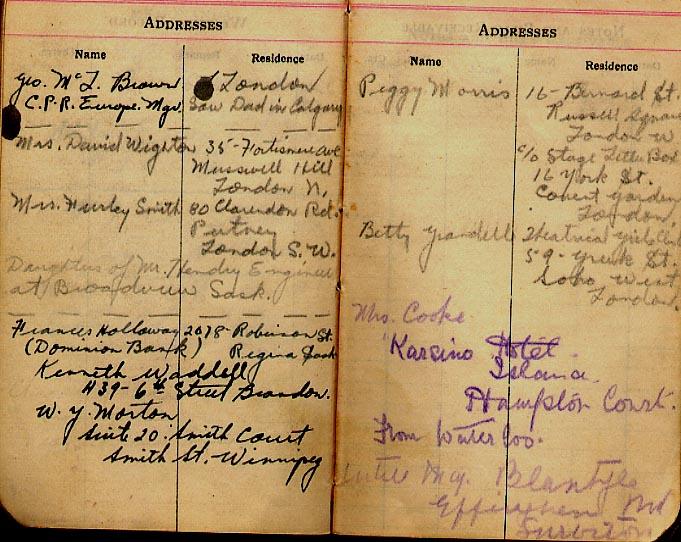 ADDRESSES
Name Residence
Geo. McL. Brown London
C.P.R. Europe. Mgr. Saw Dad in Calgary
Mrs. David Wighton 35- Fortismere Ave
Musswell Hill
London N,
Mrs. Hurley Smith 80 Clarendon Rd.
Putney
London S.W.
Daughter of Mr. Hendry Engineer
at Broadview Sask.
Frances Holloway 2078- Robinson St.
(Dominion Bank) Regina Sask
Kenneth Waddell
439- 6th Street Brandon.
W. y. Morton
Suite 20. Smith Court
Smith St. Winnipeg
ADDRESSES
Name Residence
Peggy Morris 16- Bernard St.
Russell Square
London W
c/o Stage Letter Box
16 York St.
Covent Garden
London,
Betty Grandell Theatrical Girls Club
59- Greek St.
Soho West
London.
Mrs. Cooke
"Karsino Hotel
Island.
Hampton Court.
From Waterloo.
Blantyre
Effingham Rd
Surbiton